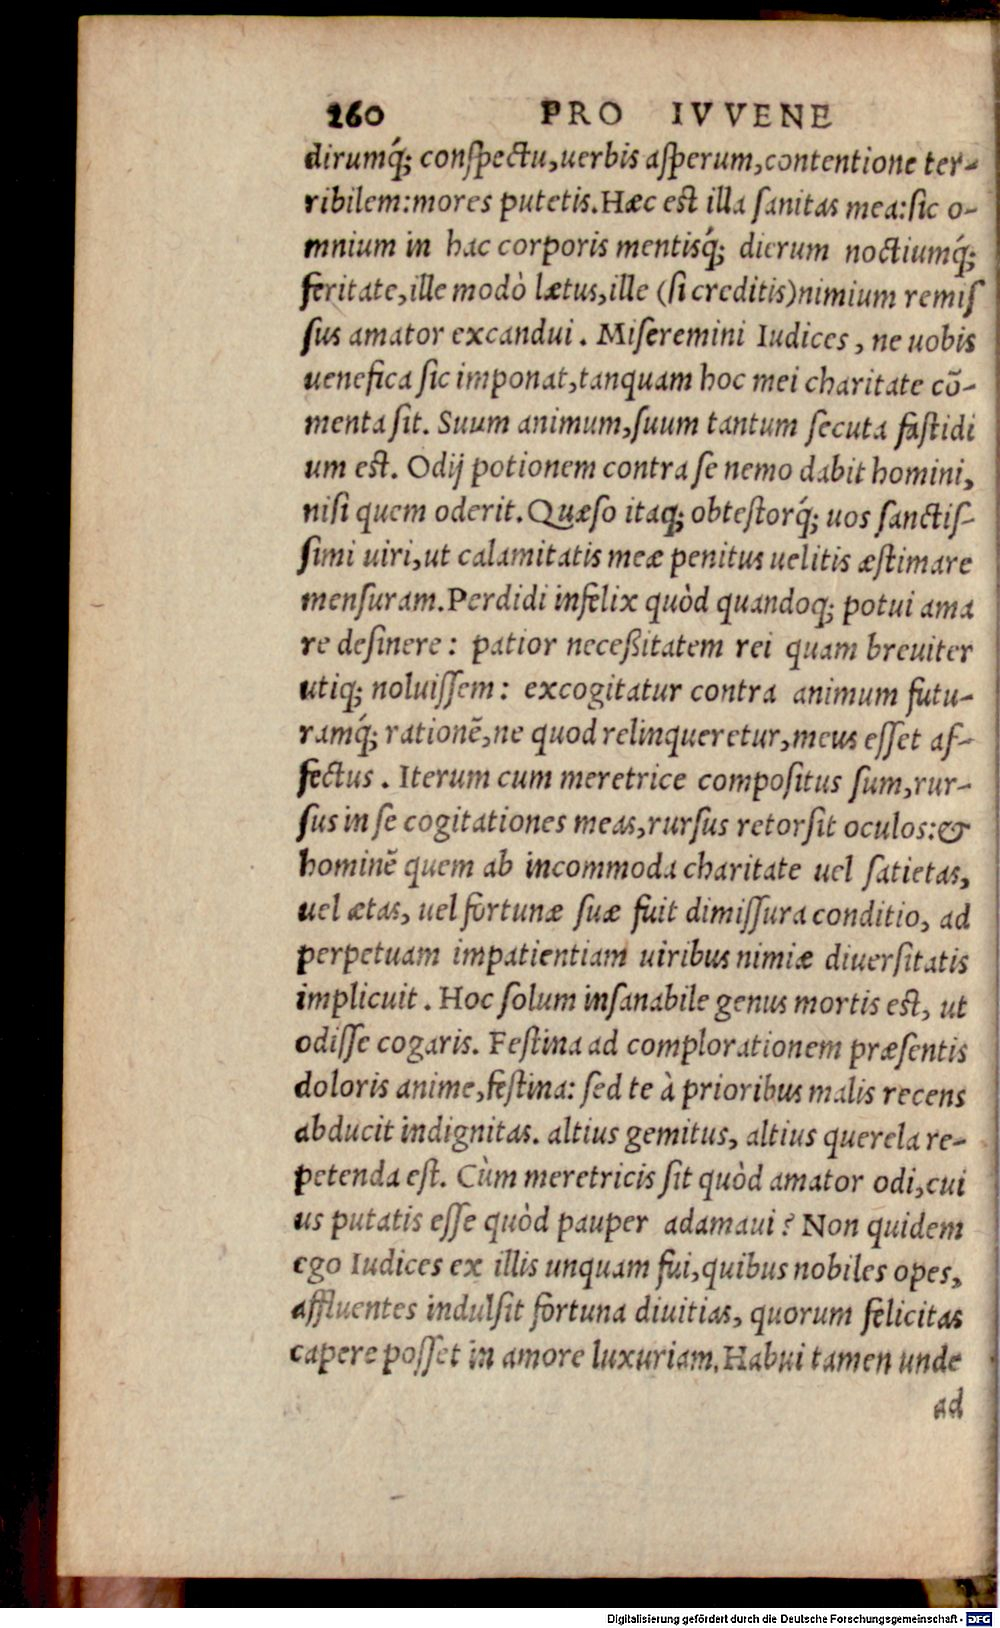 260 PRO IVVENE
dirumq́; conſpectu,uerbis aſperum,contentione ter-
ribilem:mores putetis.Hæc eſt illa ſanitas mea:ſic o-
mnium in hac corporis mentisq́; dierum noctiumq́;
feritate,ille modò lætus,ille (ſi creditis)nimium remiſ
ſus amator excandui. Miſeremini Iudices, ne uobis
uenefica ſic imponat,tanquam hoc mei charitate cō-
menta ſit. Suum animum,ſuum tantum ſecuta faſtidi
um eſt. Odij potionem contra ſe nemo dabit homini,
niſi quem oderit.Quæſo itaq; obteſtorq́; uos ſanctiſ-
ſimi uiri,ut calamitatis meæ penitus uelitis æſtimare
menſuram.Perdidi infelix quòd quandoq; potui ama
re deſinere: patior neceßitatem rei quam breuiter
utiq; noluiſſem: excogitatur contra animum futu-
ramq́; rationē,ne quod relinqueretur,meus eſſet af-
fectus. Iterum cum meretrice compoſitus ſum,rur-
ſus in ſe cogitationes meas,rurſus retorſit oculos:&
hominē quem ab incommoda charitate uel ſatietas,
uel ætas, uel fortunæ ſuæ fuit dimiſſura conditio, ad
perpetuam impatientiam uiribus nimiæ diuerſitatis
implicuit. Hoc ſolum inſanabile genus mortis eſt, ut
odiſſe cogaris. Feſtina ad complorationem præſentis
doloris anime,feſtina: ſed te à prioribus malis recens
abducit indignitas. altius gemitus, altius querela re-
petenda eſt. Cùm meretricis ſit quòd amator odi,cui
us putatis eſſe quòd pauper adamaui? Non quidem
ego Iudices ex illis unquam fui,quibus nobiles opes,
affluentes indulſit fortuna diuitias, quorum felicitas
capere poſſet in amore luxuriam.Habui tamen unde
ad
Digitalisierung gefördert durch die Deutsche Forschungsgemeinschaft - DFG